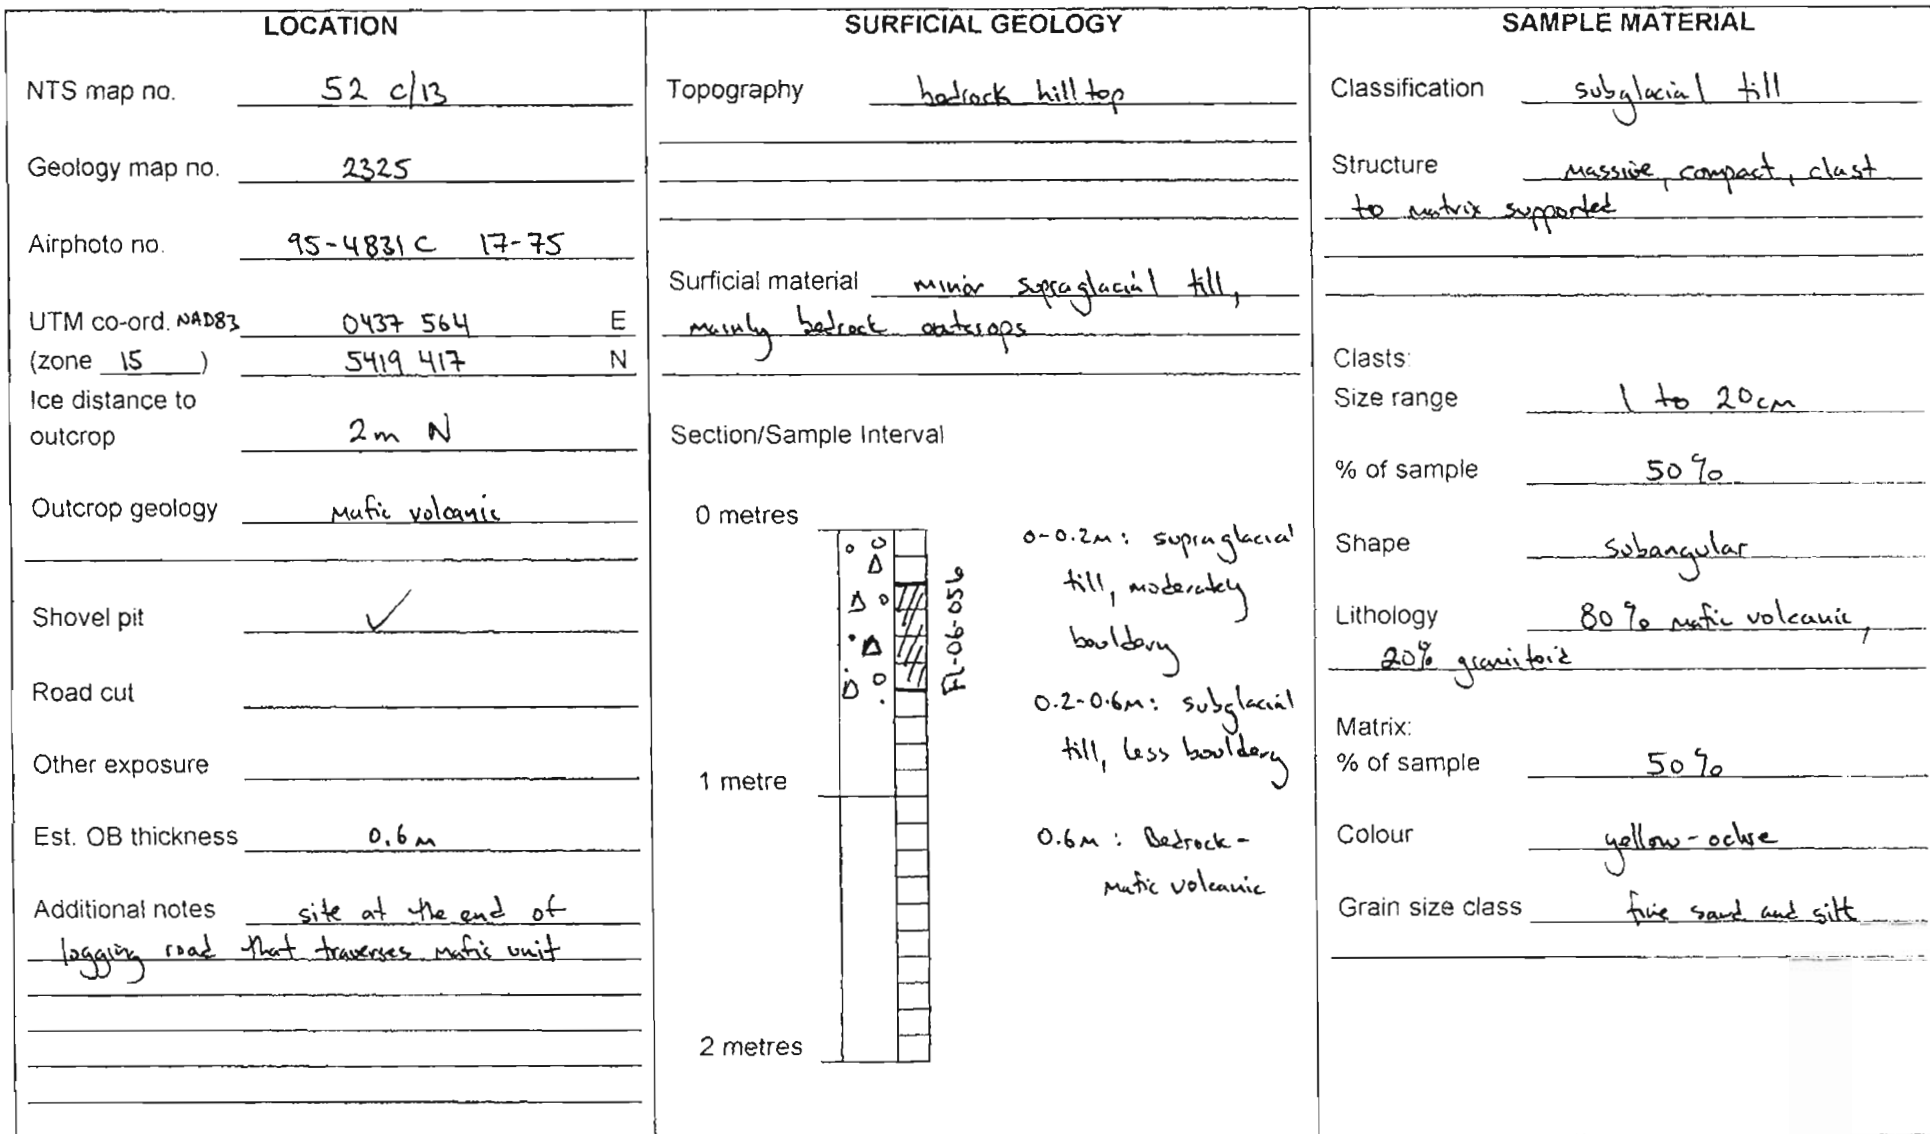 LOCATION
NTS map no. 52 c/13
Geology map no. 2325
Airphoto no. 95-4831 C 17-75
UTM co-ord. NAD83 0437 564 E
(zone 15 ) 5419 417 N
Ice distance to
outcrop 2m N
Outcrop geology Mafic volcanic
Shovel pit ✓
Road cut
Other exposure
Est. OB thickness 0.6m
Additional notes site at the end of
logging road that traverses mafic unit
SURFICIAL GEOLOGY
Topography bedrock hill top
Surficial material minor supraglacial till,
mainly bedrock outcrops
Section/Sample Interval
0 metres
1 metre
2 metres
FL-06-056
0-0.2m: supraglacial
till, moderately
bouldery
0.2-0.6m: subglacial
till, less bouldery
0.6m: Bedrock-
mafic volcanic
SAMPLE MATERIAL
Classification subglacial till
Structure massive, compact, clast
to matrix supported
Clasts:
Size range 1 to 20cm
% of sample 50%
Shape subangular
Lithology 80% mafic volcanic,
20% granitoid
Matrix:
% of sample 50%
Colour yellow-ochre
Grain size class fine sand and silt